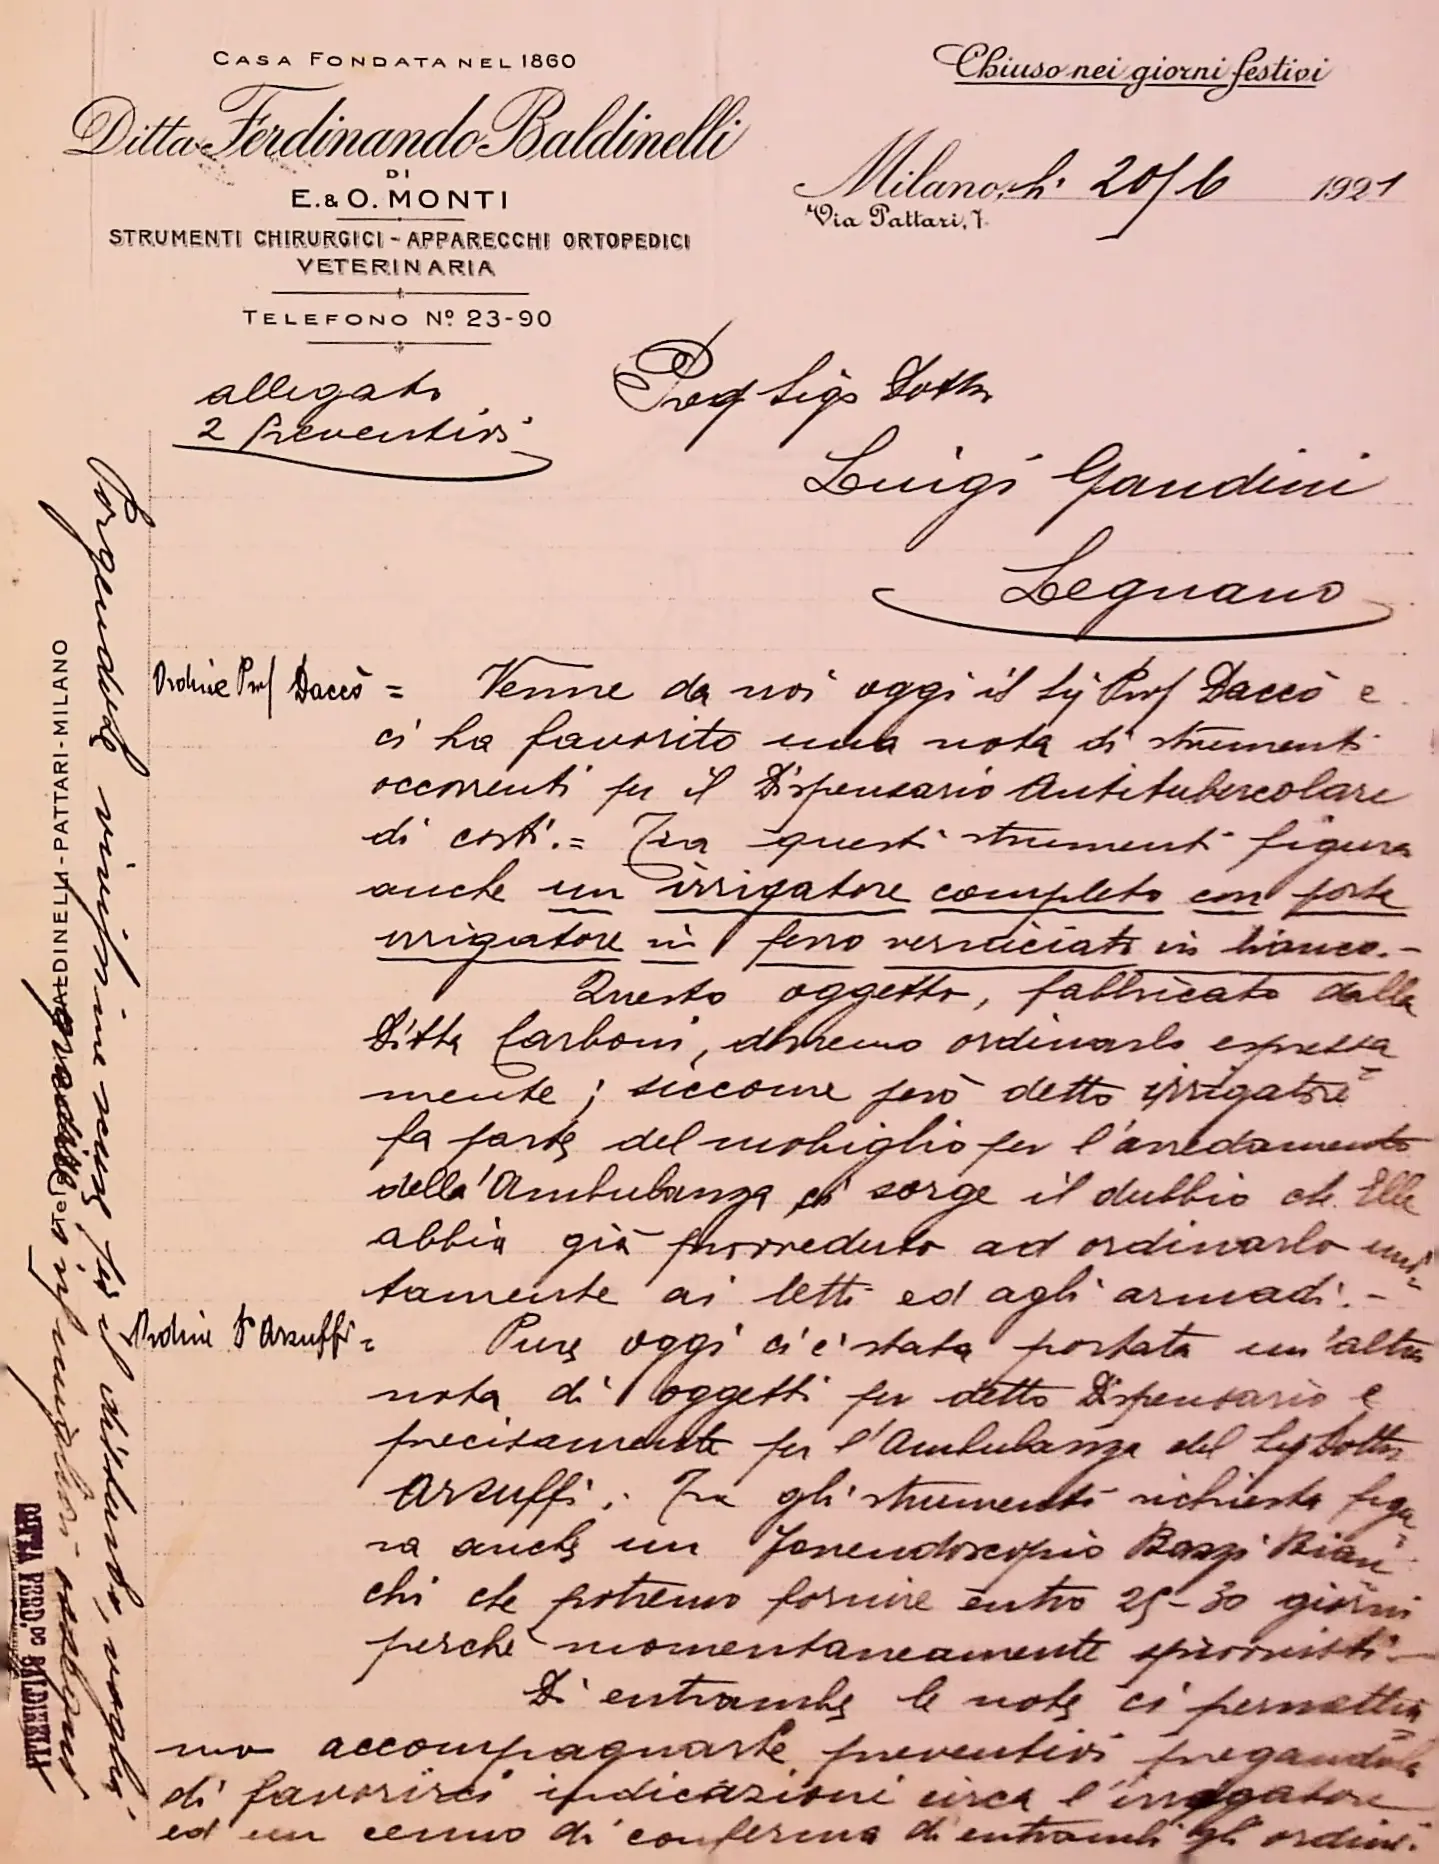 CASA FONDATA NEL 1860
Ditta Ferdinando Baldinelli
DI
E. & O. MONTI
STRUMENTI CHIRURGICI - APPARECCHI ORTOPEDICI
VETERINARIA
TELEFONO Nº 23-90
Chiuso nei giorni festivi
Milano, li 20/6 1921
Via Pattari, 7.
allegato
2 preventivi
Preg Sigr Dottr
Luigi Gandini
Legnano
Ordine Prof Daccò = Venne da noi oggi il Sig Prof Daccò e
ci ha favorito una nota di strumenti
occorrenti per il Dispensario Antitubercolare
di costì. = Fra questi strumenti figura
anche un irrigatore completo con porta
irrigatore in ferro verniciato in bianco. -
Questo oggetto, fabbricato dalla
Ditta Carboni, dovremo ordinarlo espressa=
mente; siccome però detto irrigatore
fa parte del mobiglio per l'arredamento
della Ambulanza ci sorge il dubbio che Ella
abbia già provveduto ad ordinarlo uni=
tamente ai letti ed agli armadi. -
Ordine Dr Arzuffi = Pure oggi ci è stata portata un'altra
nota di oggetti per detto Dispensario e
precisamente per l'Ambulanza del Sig Dottr
Arzuffi. Fra gli strumenti richiesti figu=
ra anche un Fonendoscopio Bazzi Bian=
chi che potremo fornire entro 25-30 giorni
perchè momentaneamente sprovvisti. -
Di entrambe le note ci permettia=
mo accompagnarle preventivi pregandola
di favorirci indicazioni circa l'irrigatore
ed un cenno di conferma di entrambi gli ordini.
Porgendole vivissime scuse per il disturbo, voglia
BALDINELLI - PATTARI - MILANO
DITTA FERD. DO BALDINELLI